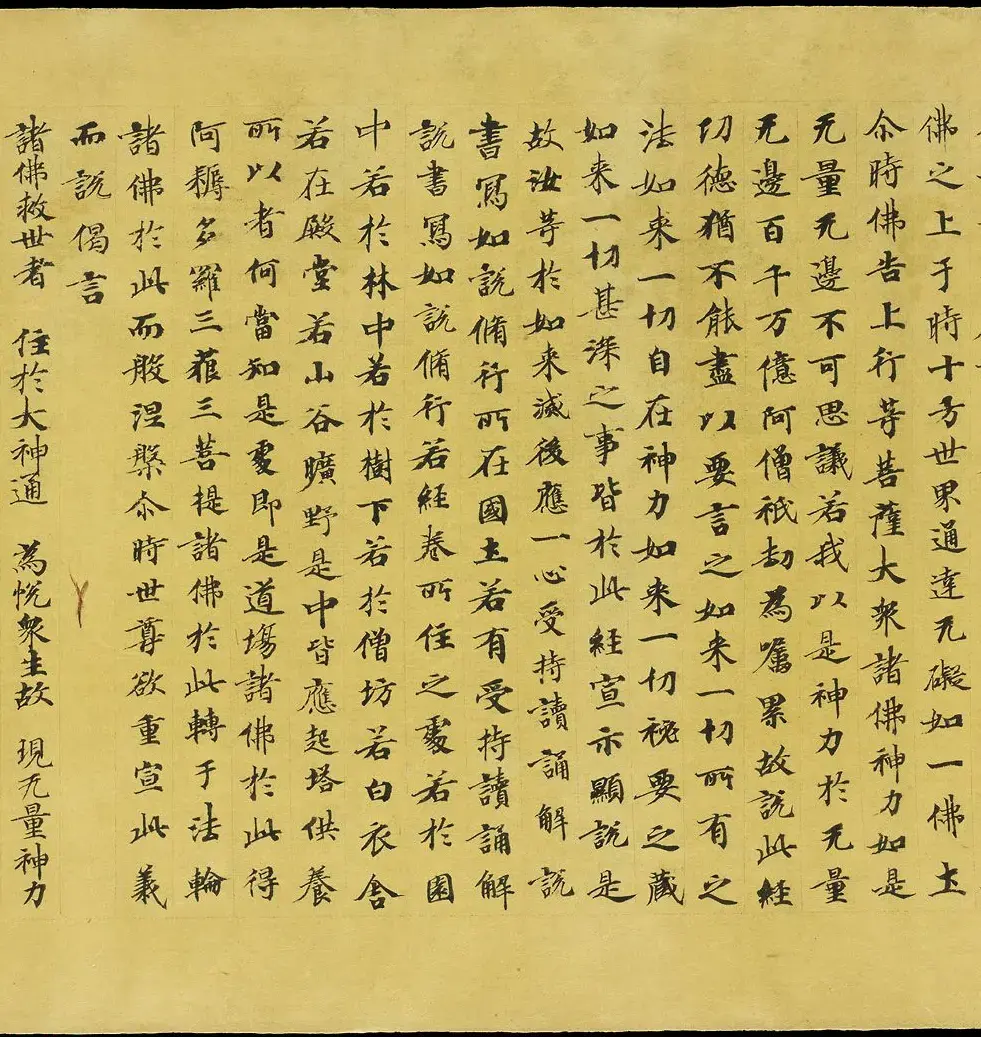 佛之上于時十方世界通達无礙如一佛土
尒時佛告上行等菩薩大衆諸佛神力如是
无量无邊不可思議若我以是神力於无量
无邊百千万億阿僧祇劫為囑累故說此經
功德猶不能盡以要言之如来一切所有之
法如来一切自在神力如来一切祕要之藏
如来一切甚深之事皆於此經宣示顯說是
故汝等於如来滅後應一心受持讀誦解說
書寫如說脩行所在國土若有受持讀誦解
說書寫如說脩行若經卷所住之處若於園
中若於林中若於樹下若於僧坊若白衣舍
若在殿堂若山谷曠野是中皆應起塔供養
所以者何當知是處即是道場諸佛於此得
阿耨多羅三藐三菩提諸佛於此轉于法輪
諸佛於此而般涅槃尒時世尊欲重宣此義
而說偈言
諸佛救世者　住於大神通　為悅衆生故　現无量神力